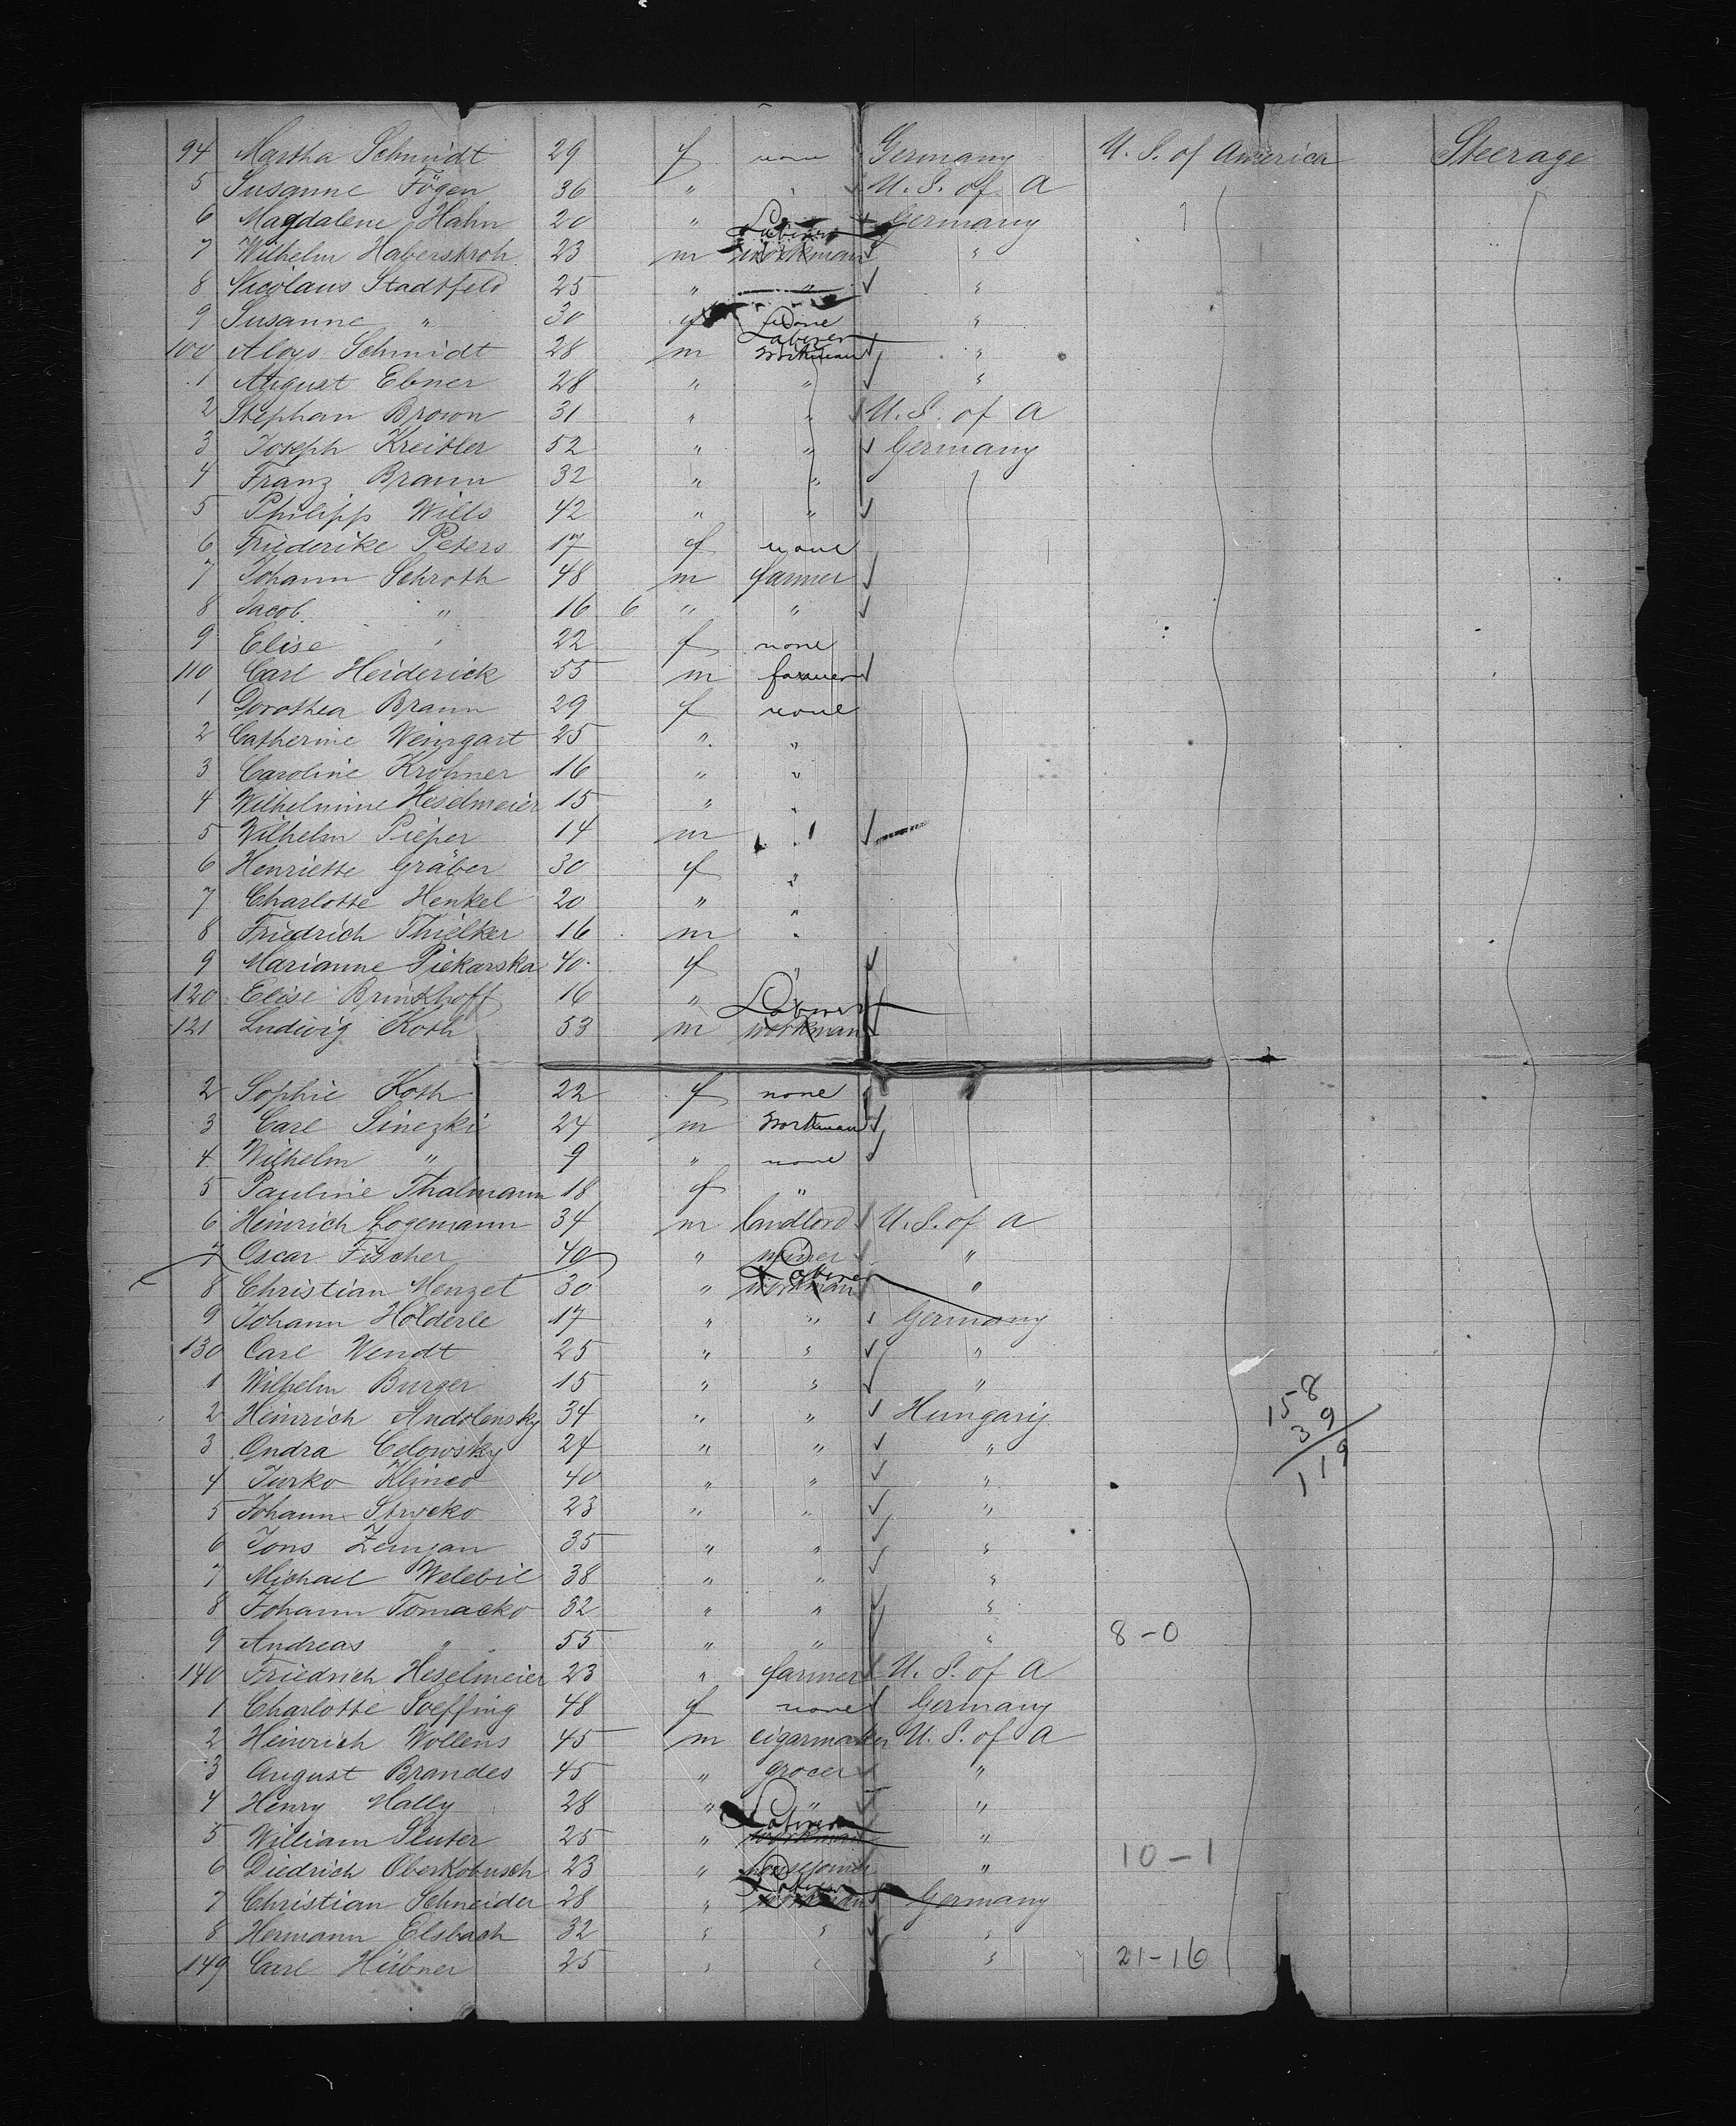 94 Martha Schmidt 29 f none Germany U. S. of America Steerage
5 Susanne Fögen 36 " " U. S. of A
6 Magdalene Hahn 20 " " Germany
7 Wilhelm Haberstroh 23 m Laborer workman "
8 Nicolaus Stadtfeld 25 " " "
9 Susanne " 30 f none "
100 Aloys Schmidt 28 m Laborer workman "
1 August Ebner 28 " " "
2 Stephan Brown 31 " " U. S. of A
3 Joseph Kreitler 52 " " Germany
4 Franz Braun 32 " "
5 Philipp Wills 42 " "
6 Friederike Peters 17 f none
7 Johann Schroth 48 m farmer
8 Jacob " 16 6 " "
9 Elise " 22 f none
110 Carl Heiderick 55 m farmer
1 Dorothea Braun 29 f none
2 Catherine Weingart 25 " "
3 Caroline Krohner 16 " "
4 Wilhelmine Heselmeier 15 " "
5 Wilhelm Pieper 14 m "
6 Henriette Gräber 30 f "
7 Charlotte Henkel 20 " "
8 Friedrich Thielker 16 m "
9 Marianne Piekarska 40 f "
120 Elise Brinkhoff 16 "
121 Ludwig Koth 53 m Laborer workman
2 Sophie Koth 22 f none
3 Carl Sinezki 24 m workman
4 Wilhelm " 9 " none
5 Pauline Thalmann 18 f "
6 Heinrich Logemann 34 m landlord U. S. of A
7 Oscar Fischer 40 " miner "
8 Christian Menzel 30 " Laborer workman "
9 Johann Hölderle 17 " " Germany
130 Carl Wendt 25 " " "
1 Wilhelm Burger 15 " " "
2 Heinrich Andolensky 34 " " Hungary
3 Ondra Celowsky 24 " " "
4 Jurko Klinco 40 " " "
5 Johann Strycko 23 " " "
6 Jons Zemjan 35 " " "
7 Michael Welebil 38 " " "
8 Johann Tomacko 32 " " "
9 Andreas " 55 " " " 8-0
140 Friedrich Heselmeier 23 " farmer U. S. of A
1 Charlotte Soeffing 48 f none Germany
2 Heinrich Wollens 45 m cigarmaker U. S. of A
3 August Brandes 45 " grocer "
4 Henry Mally 28 " " "
5 William Sluter 25 " Laborer workman "
6 Diedrich Oberkobusch 23 " housejoiner " 10-1
7 Christian Schneider 28 " Laborer workman Germany
8 Hermann Elsbach 32 " " "
149 Carl Hübner 25 " " " 21-16
158
39
119